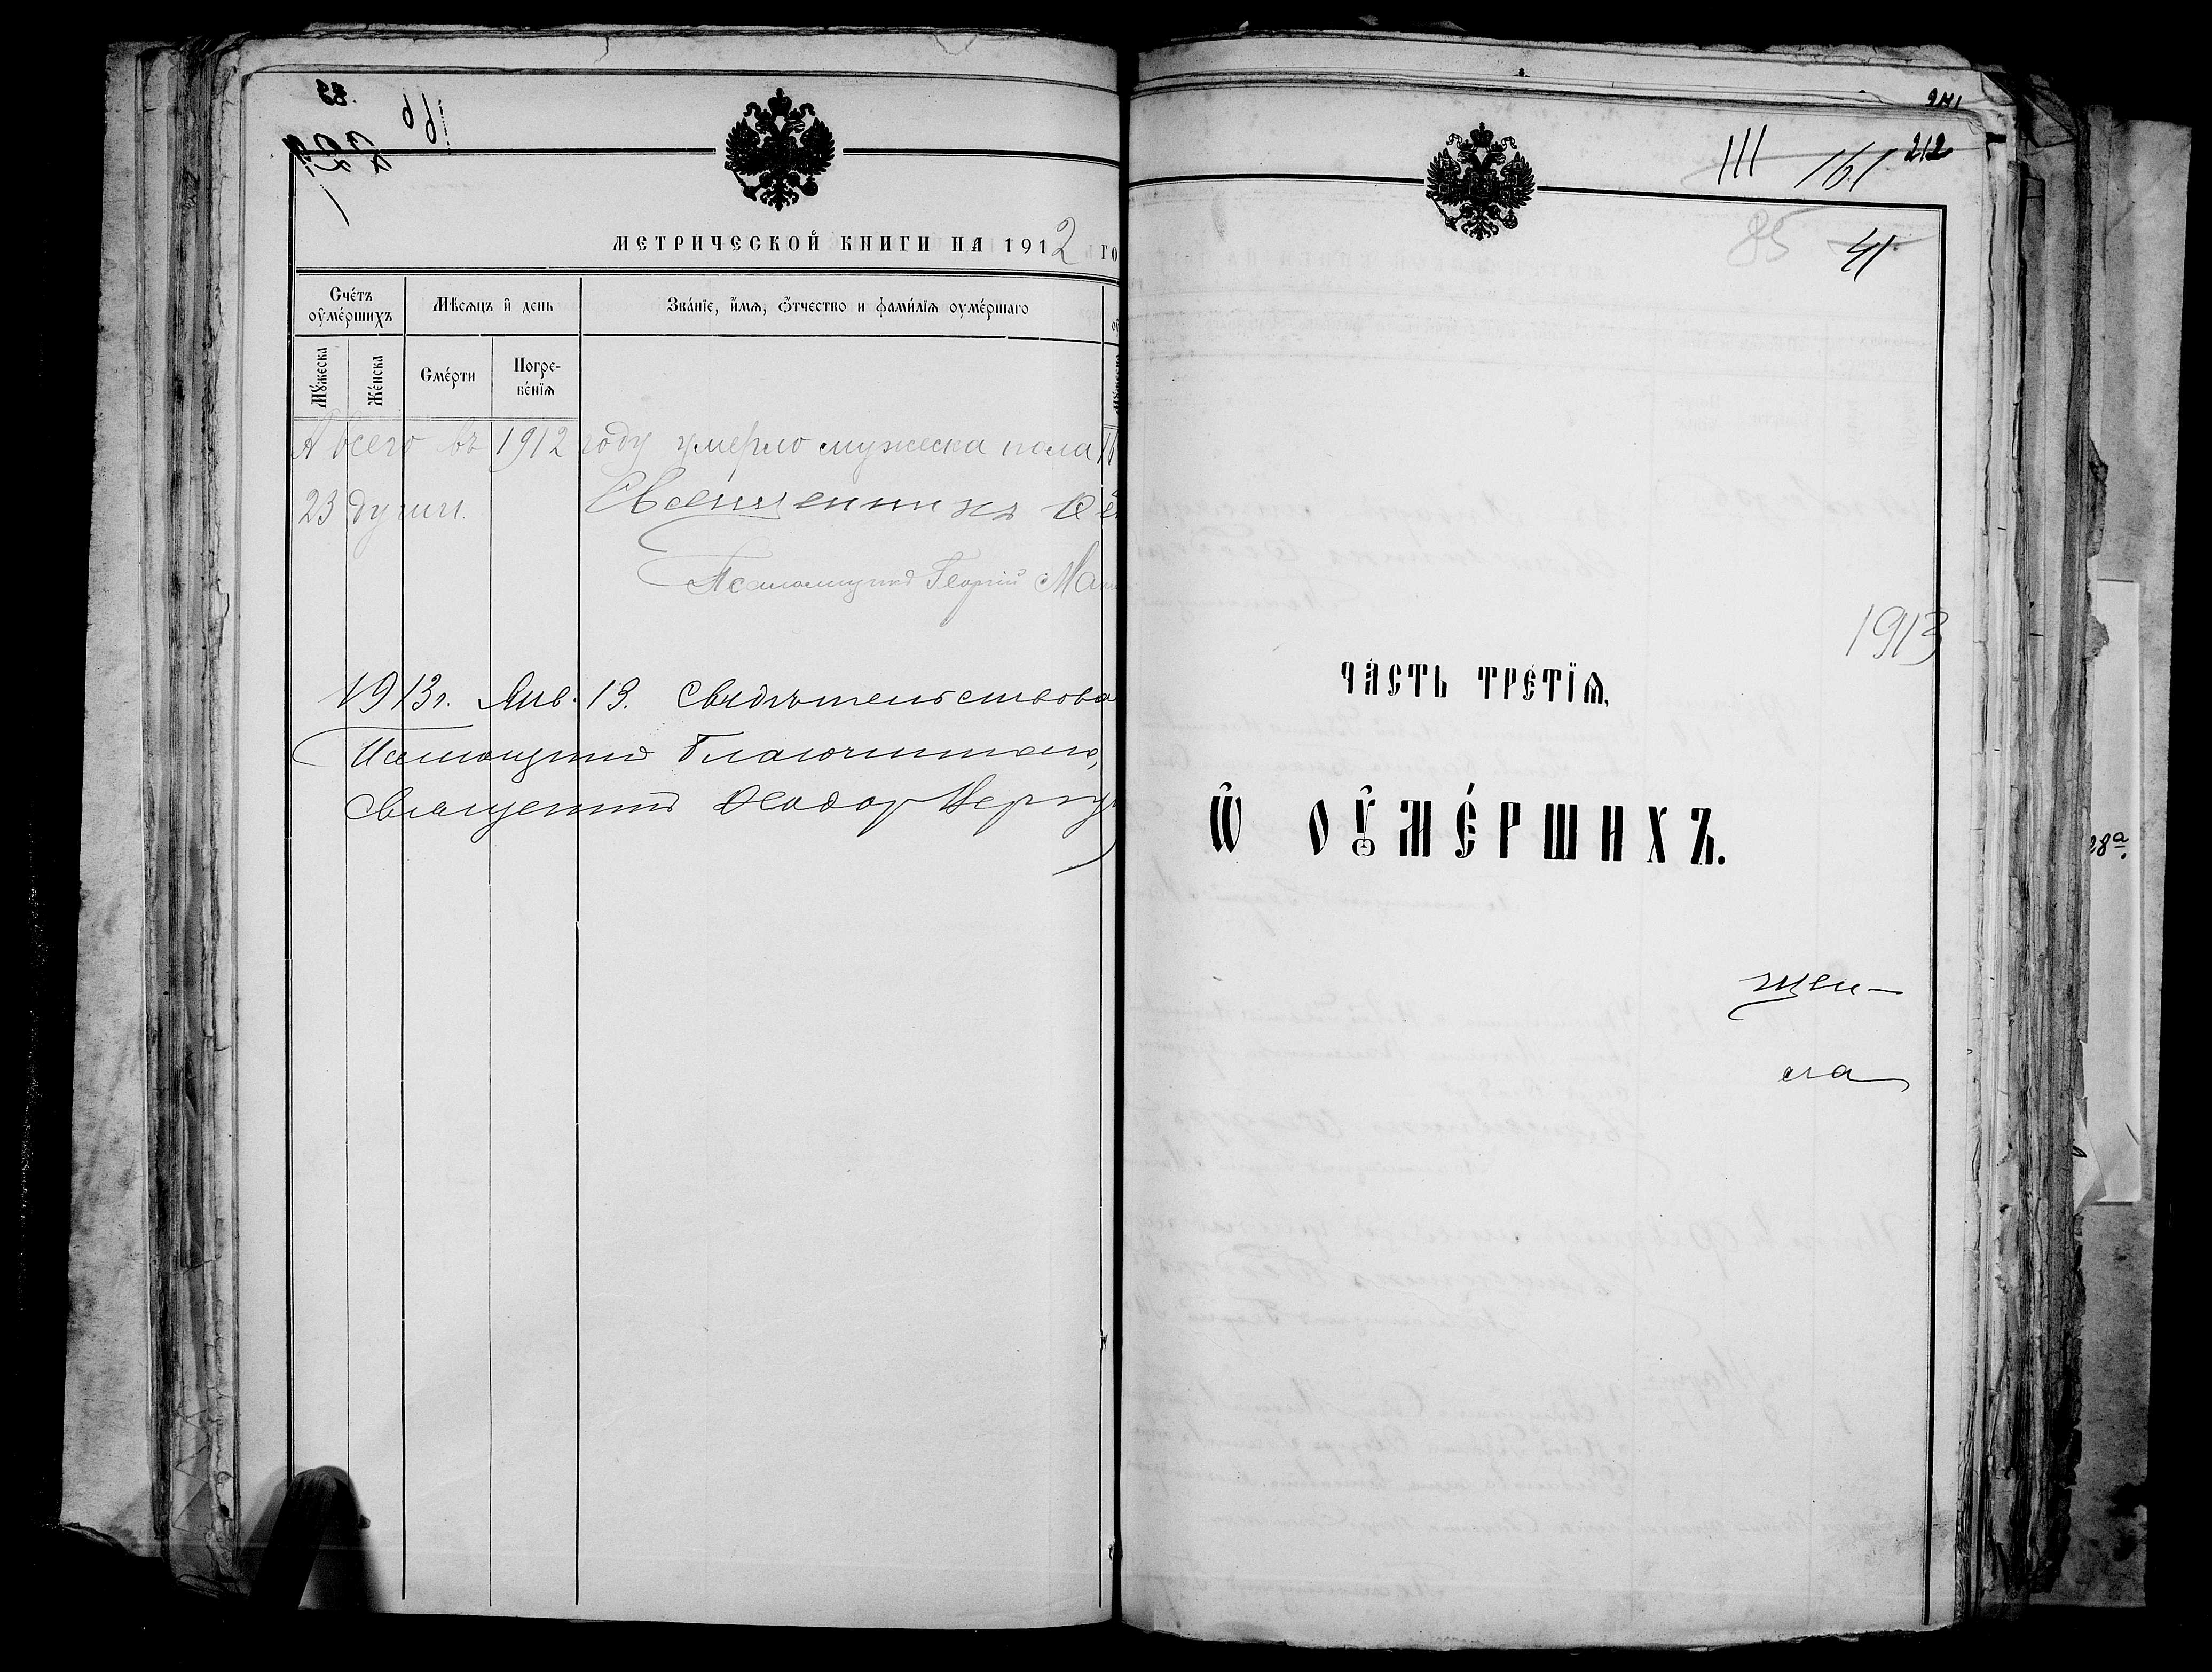 МЕТРИЧЕСКОЙ КНИГИ НА 1912 ГО
Сче́тъ оумершихъ
Мѣсяцъ и день
Зва́нїе, и́мѧ, ѻтчество и фами́лїѧ оуме́ршагѡ
Мꙋжеска
Же́нска
Сме́рти
Погре-
бе́нїѧ
А всего въ 1912 году умерло мужеска пола 16
23 души.
Священникъ
Псаломщикъ Георгій
1913г. Янв. 13. Свидѣтельствова
Благочиннаго,
Священникъ Ѳеодор
241
111 161 212
85 41
1913
ЧА́СТЬ ТРЕ́ТЇѦ,
Ѽ ОУ҆МЕ́РШИХЪ.
28а